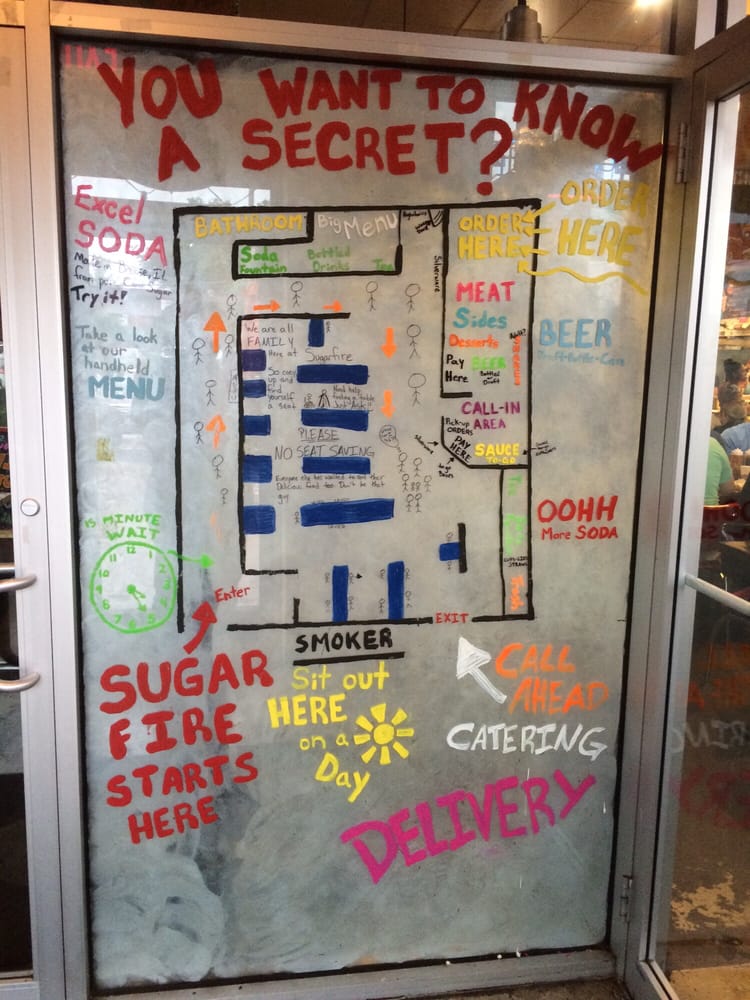 YOU WANT TO KNOW
A SECRET?
Excel
SODA
Try it!
Take a look
at our
handheld
MENU
15 MINUTE
WAIT
12
BATHROOM
Big Menu
Soda
Fountain
Bottled
Drinks
Tea
Silverware
ORDER
HERE
ORDER
HERE
MEAT
Sides
Desserts
Pay
Here
BEER
Bottled
Draft
BEER
Draft-Bottle-Can
CALL-IN
AREA
Pick-up
ORDERS
PAY
HERE
SAUCE
TO-GO
We are all
FAMILY
Here at
Sugarfire
So cozy
up and
find
yourself
a seat
Need help
finding a table
Just "Ask"!!
PLEASE
NO SEAT SAVING
Everyone else has waited to eat their
Delicious food too. Don't be that
guy
OOHH
More SODA
Enter
EXIT
SMOKER
SUGAR
FIRE
STARTS
HERE
Sit out
HERE
on a
Day
CALL
AHEAD
CATERING
DELIVERY